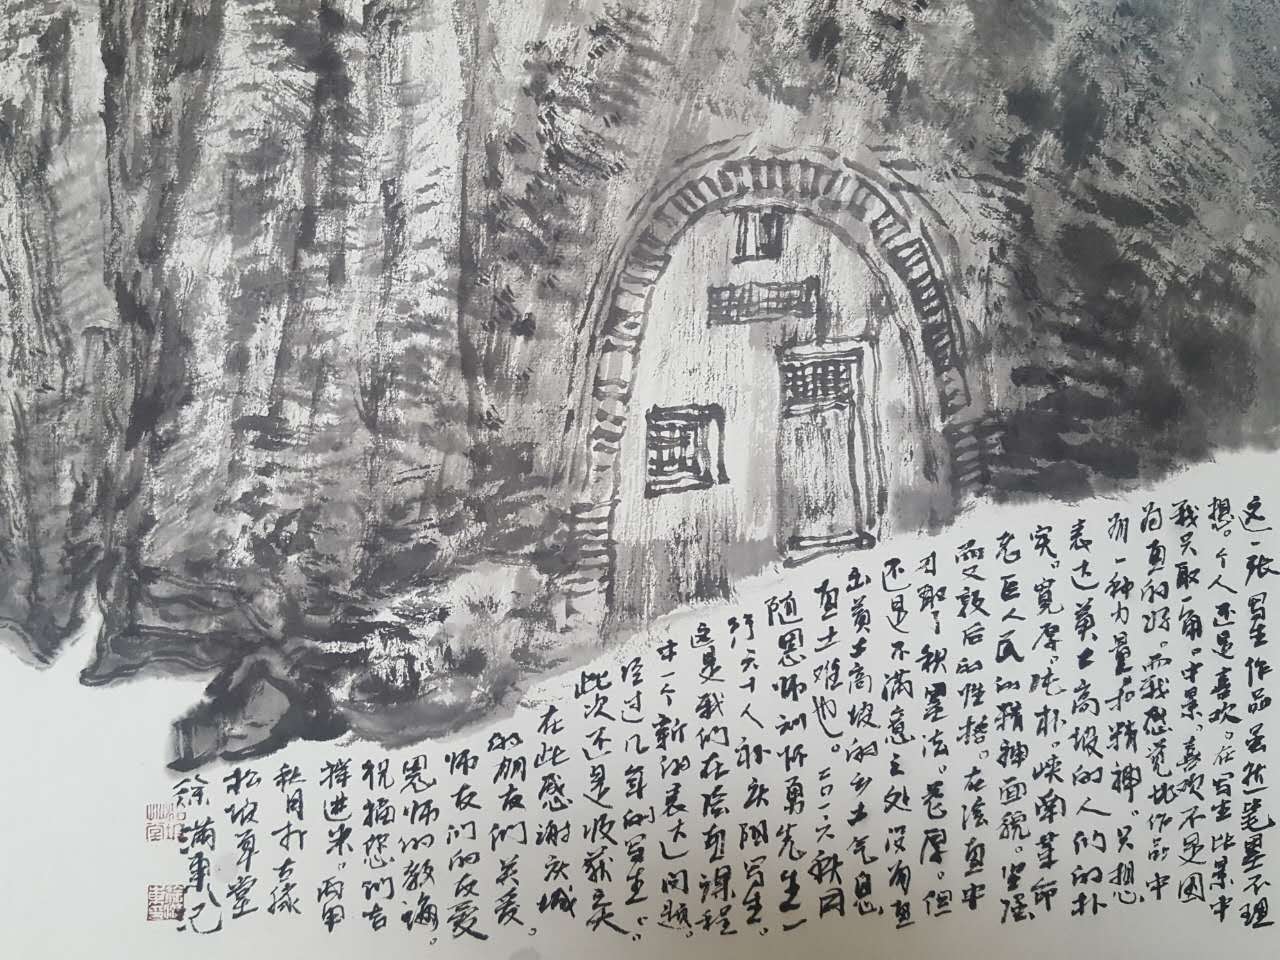 这一张写生作品虽然笔墨不理
想。个人还是喜欢。在写生此景中
我只取一角。中景。喜欢不是因
为真的好。而我感觉此作品中
有一种力量和精神。只想
表达黄土高坡的人们的朴
实。宽厚。纯朴。陕南革命
老区人民的精神面貌。坚强
而又敦后的性格。在这画中
取了积墨法。浓厚。但
还是不满意之处没有画
出黄土高坡的乡土气息
画土难也。二〇一六秋同
随恩师刘怀勇先生一
行六十人 庆阳写生。
这是我们在绘画课程
中一个新的表达问题。
经过几年的写生。
此次还是收获之大
在此感谢庆城
的朋友们关爱。
师友们的友爱
恩师的教诲。
祝福您们吉
祥进来。丙申
秋月于古缘
松坡草堂
徐满军记